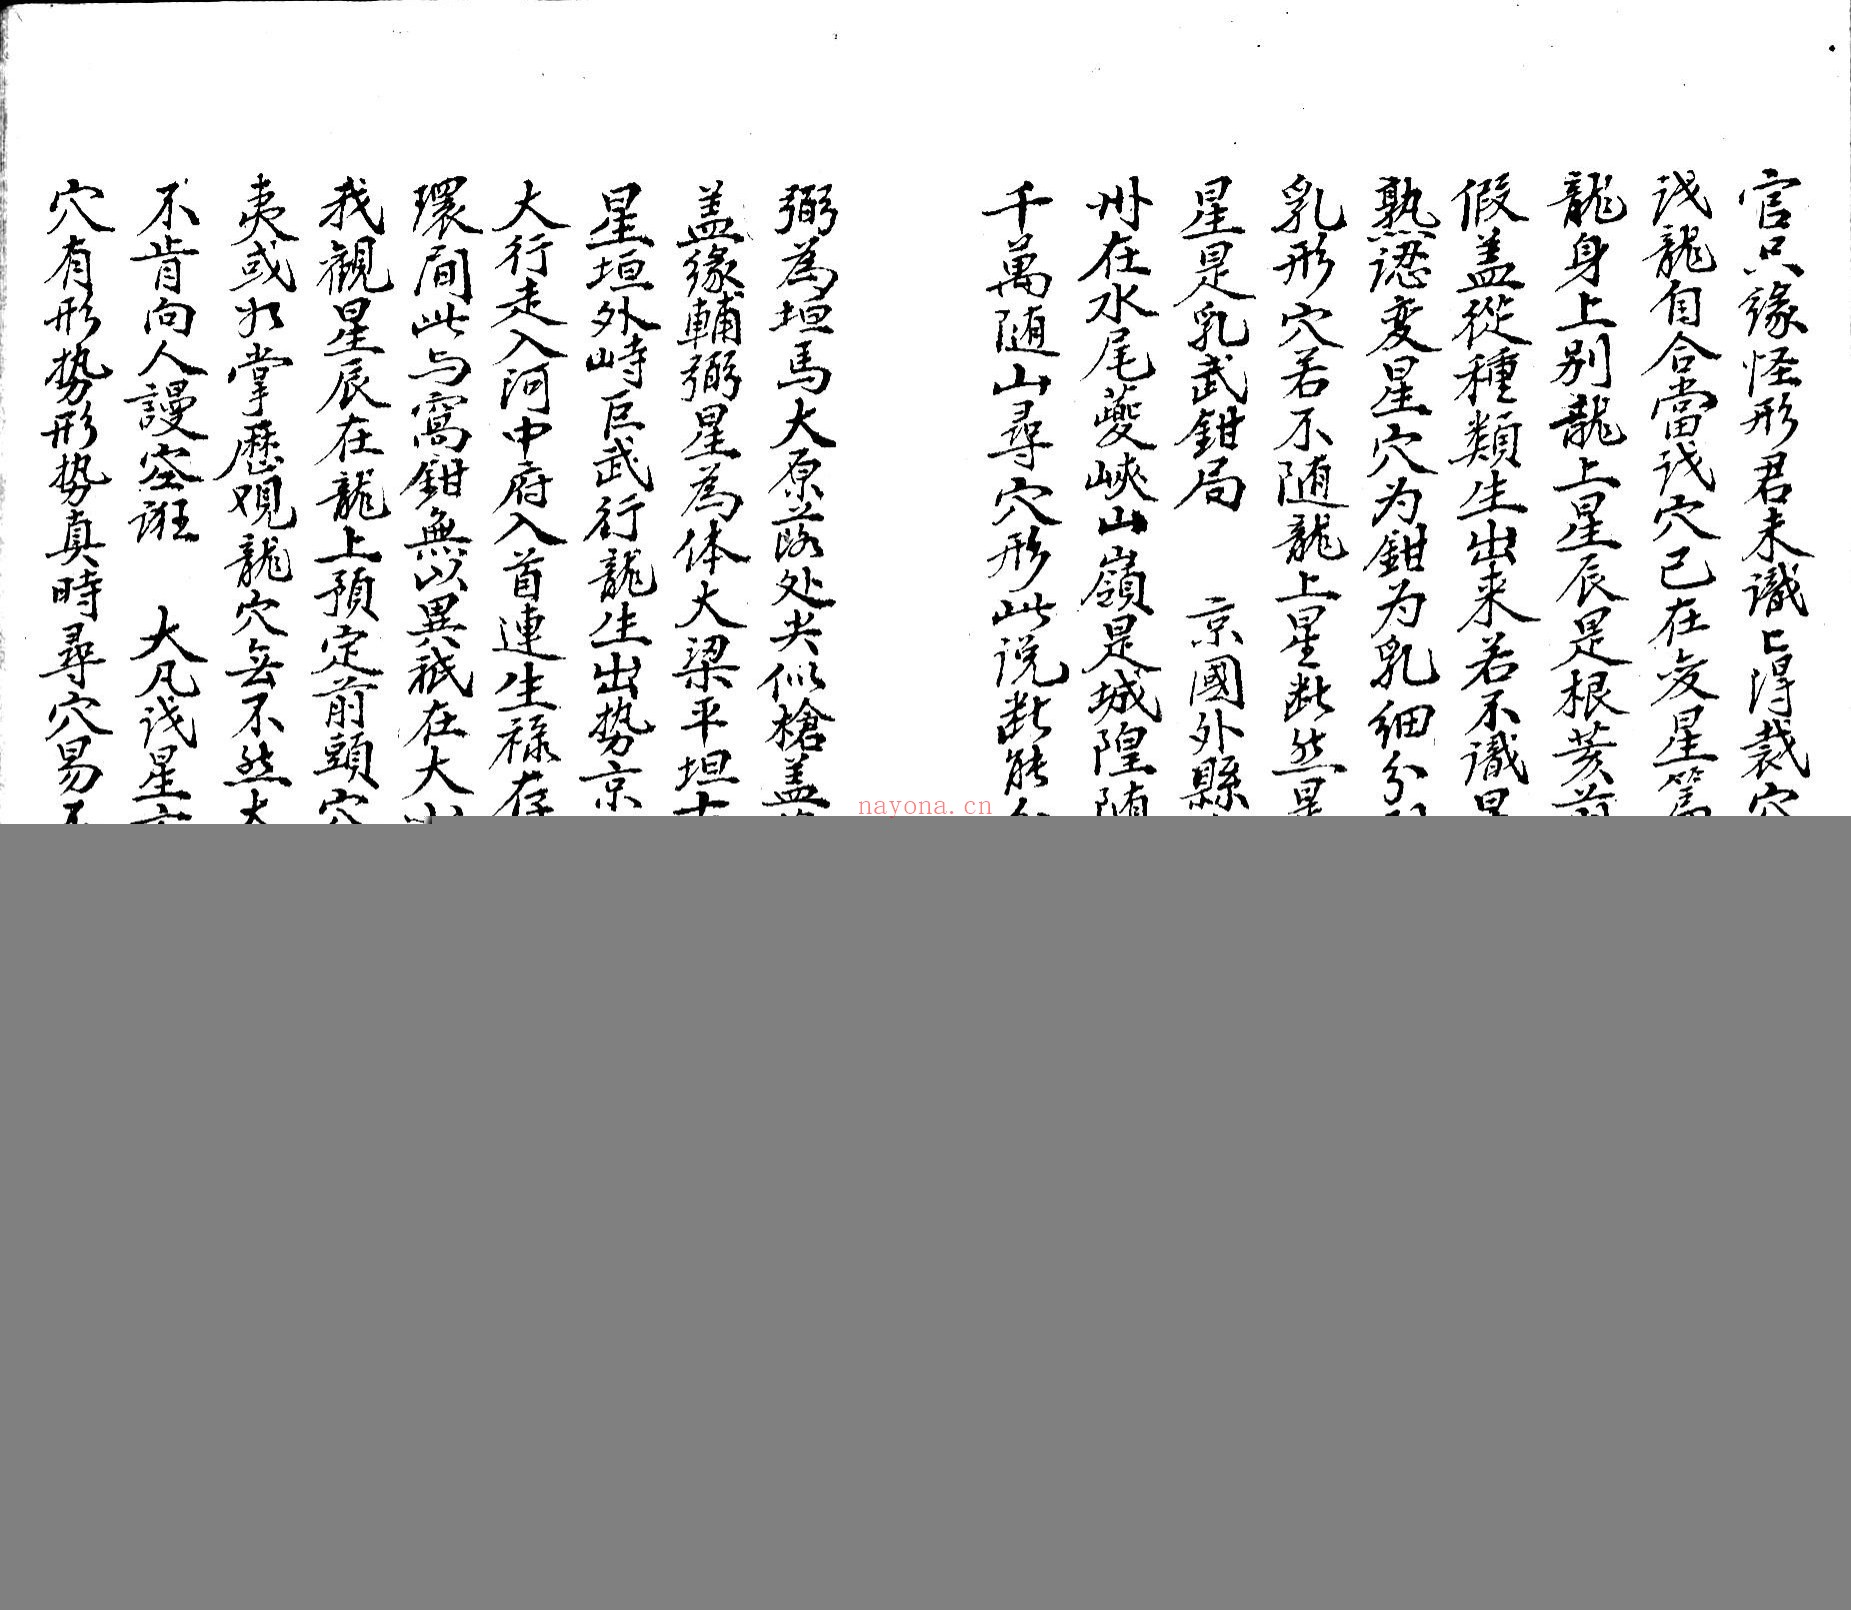 官只緣怪形君未識㠯得裁穴
识龍自合當识穴已在变星篇
龍身上别龍上星辰是根荄前
假盖從種類生出来若不識星
熟認变星穴为鉗为乳細分
乳形穴若不随龍上星断然是
星是乳武鉗局 京國外縣
州在水尾夔峽山嶺是城隍随
千萬随山尋穴形此说断能
弼為垣馬大原落处尖似槍盖
盖緣輔弼星為体大梁平坦
星垣外峙巨武行龍生出势京
大行走入河中府入首連生禄存
環间此与窩鉗無以異祇在大
我觀星辰在龍上預定前頭穴
夷或从掌歷觀龍穴無不然大
不肯向人謾空誑 大凡识星
穴有形势形势真時尋穴易不
nayona.cn